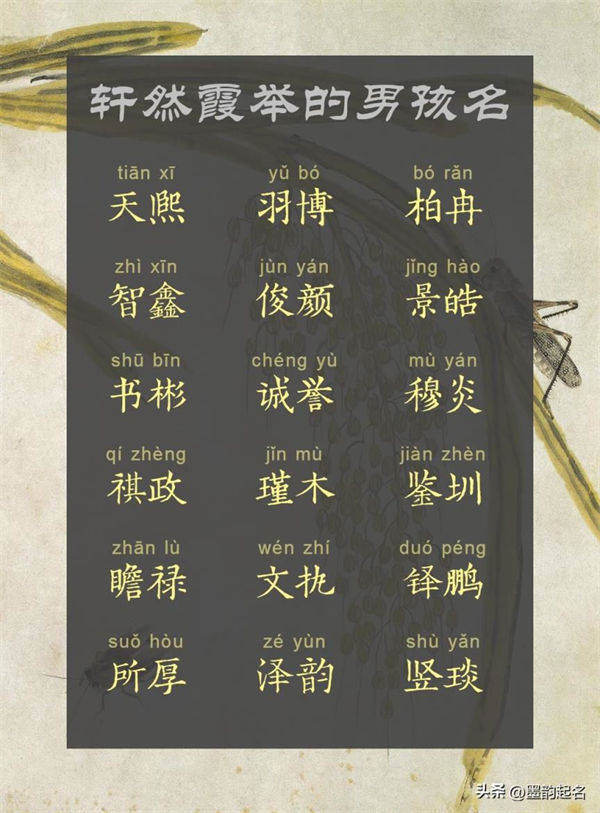 轩然霞举的男孩名
tiān xī yǔ bó bó rǎn
天熙 羽博 柏冉
zhì xīn jùn yán jǐng hào
智鑫 俊颜 景皓
shū bīn chéng yù mù yán
书彬 诚誉 穆炎
qí zhèng jǐn mù jiàn zhèn
祺政 瑾木 鉴圳
zhān lù wén zhí duó péng
瞻禄 文执 铎鹏
suǒ hòu zé yùn shù yǎn
所厚 泽韵 竖琰
头条 @墨韵起名